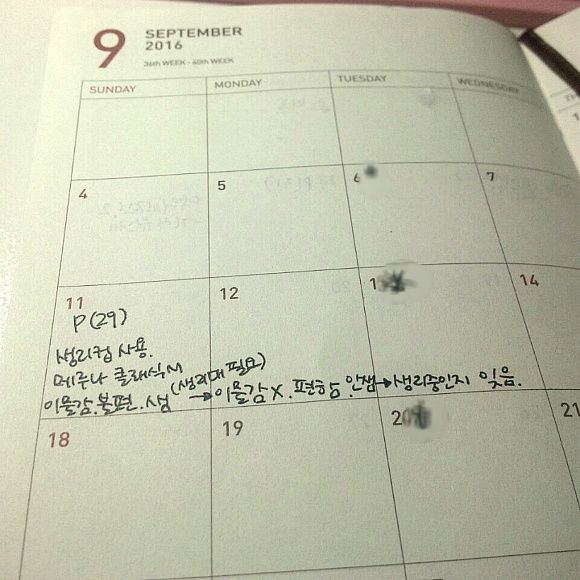 9 SEPTEMBER
2016
36th WEK - 40th WEEK
SUNDAY MONDAY TUESDAY WEDNESDAY
4 5 6 7
11 12 1 14
P(29)
생리컵 사용.
메루나 클래식M (생리대 필요)
이물감.불편.샘 → 이물감X.편함.안샘→생리중인지 잊음.
18 19 2 21